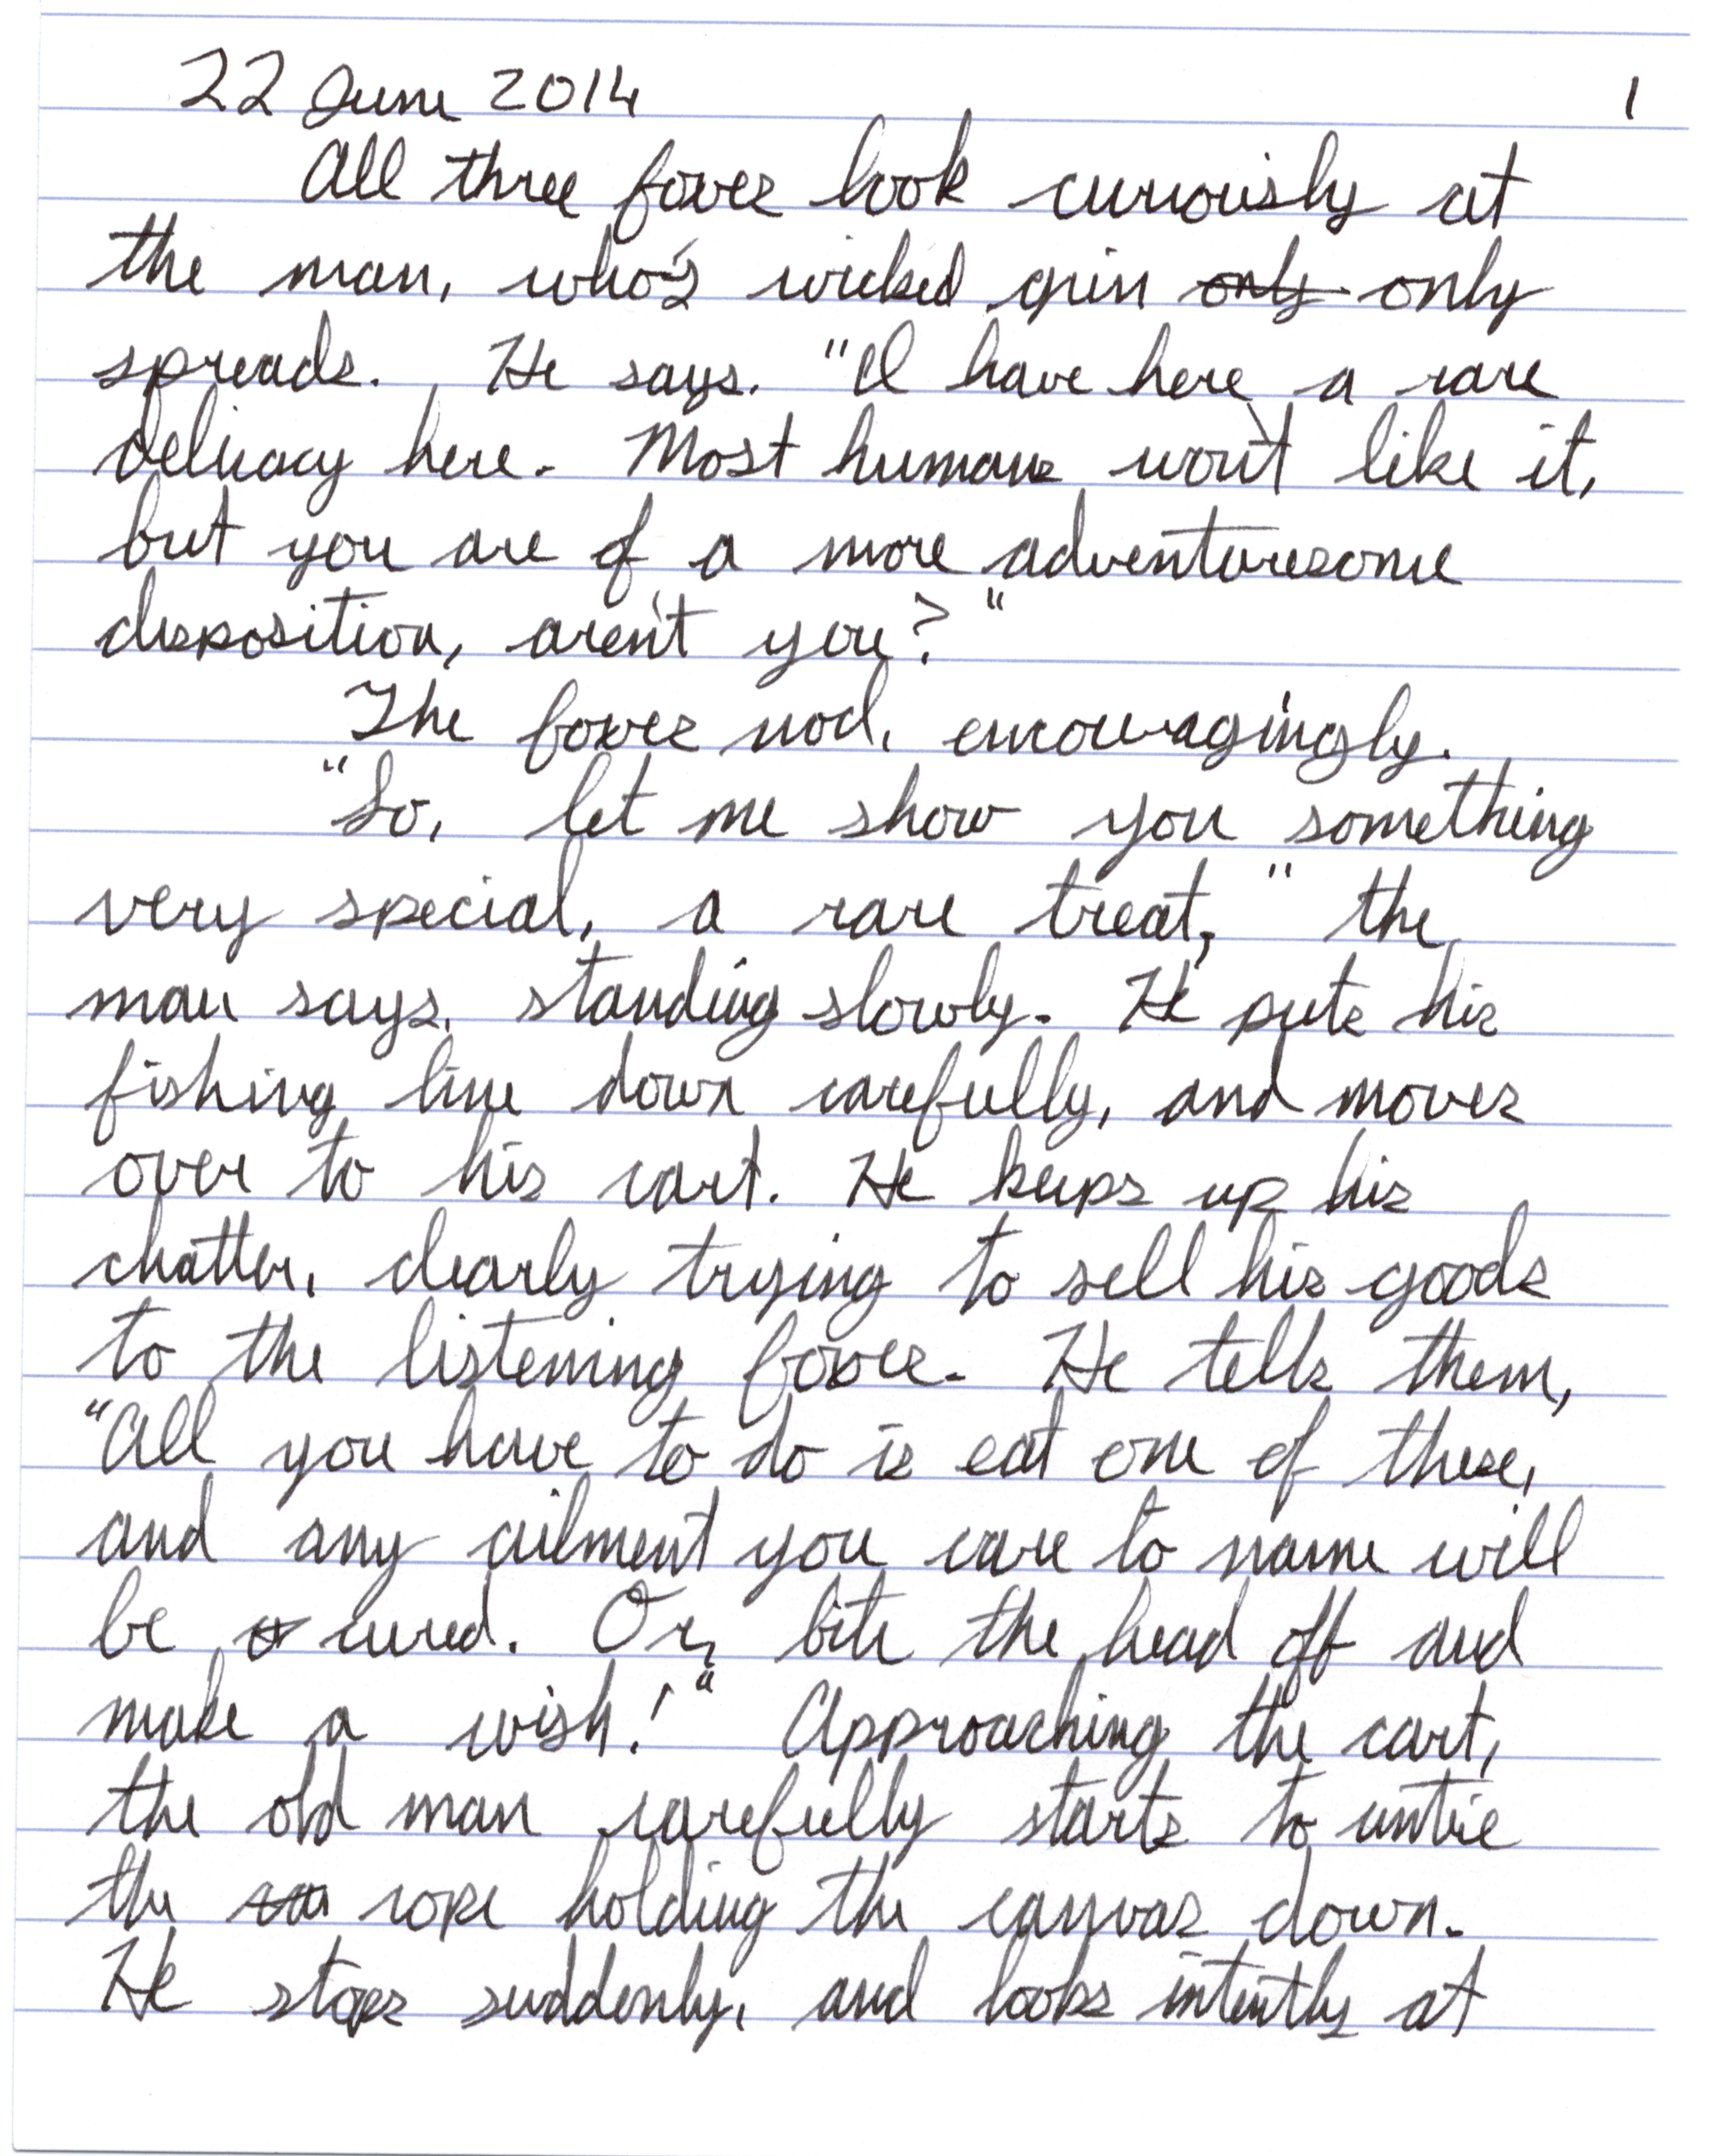 22 June 2014 1
All three foxes look curiously at
the man, who's wicked grin only only
spreads. He says. "I have here a rare
delicacy here. Most humans won't like it,
but you are of a more adventuresome
disposition, aren't you?"
The foxes nod, encouragingly.
"So, let me show you something
very special, a rare treat," the
man says, standing slowly. He puts his
fishing line down carefully, and moves
over to his cart. He keeps up his
chatter, clearly trying to sell his goods
to the listening foxes. He tells them,
"All you have to do is eat one of these,
and any ailment you care to name will
be cured. Or, bite the head off and
make a wish!" Approaching the cart,
the old man carefully starts to untie
the rope holding the canvas down.
He stops suddenly, and looks intently at